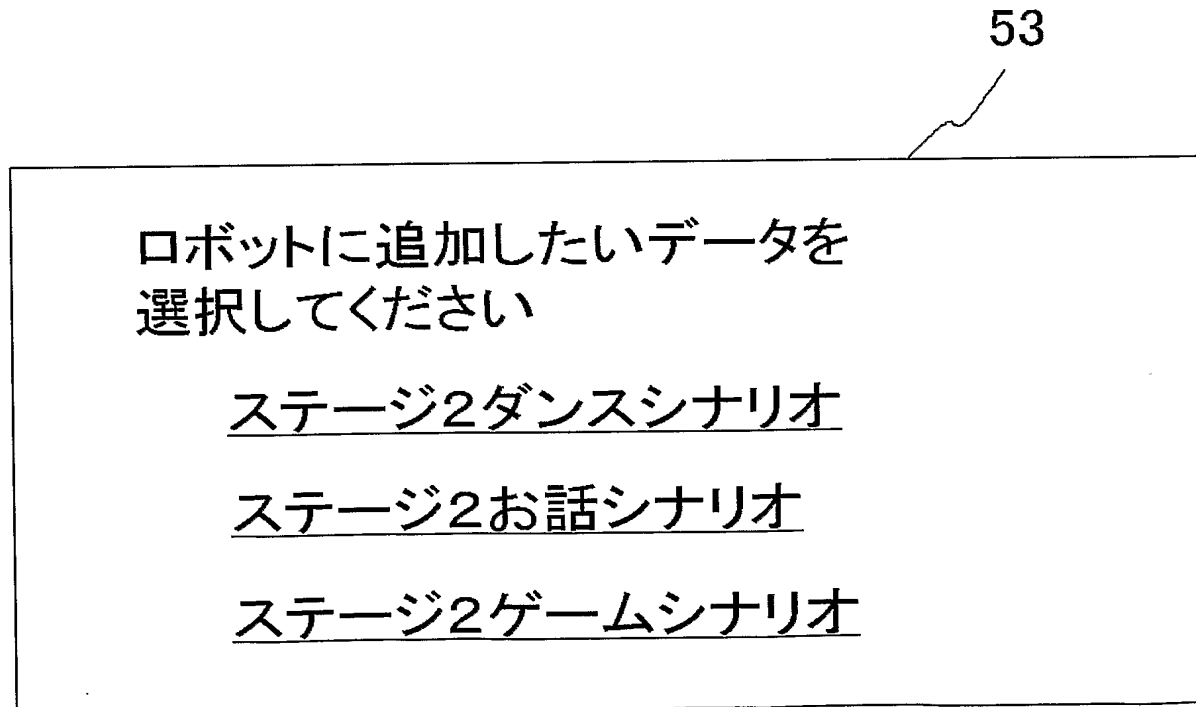 53
ロボットに追加したいデータを
選択してください
ステージ2ダンスシナリオ
ステージ2お話シナリオ
ステージ2ゲームシナリオ